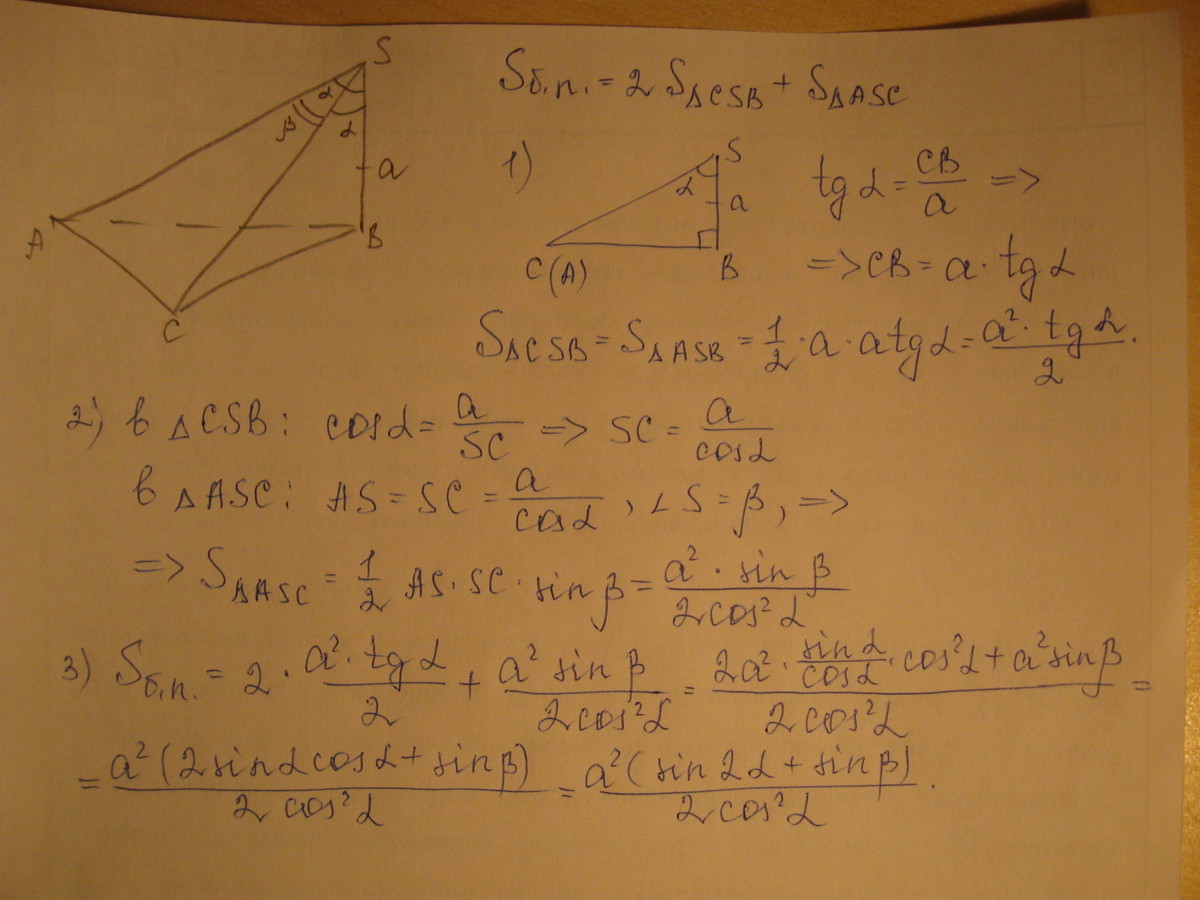 S
α
β
α
a
A
B
C
Sб.п. = 2 S△CSB + S△ASC
1)
S
α
a
C(A)
B
tg α = CB/a =>
=> CB = a · tg α
S△CSB = S△ASB = 1/2 · a · a tg α = a² · tg α / 2.
2) в △CSB: cos α = a/SC => SC = a/cos α
в △ASC: AS = SC = a/cos α, ∠S = β, =>
=> S△ASC = 1/2 AS · SC · sin β = a² · sin β / 2cos²α
3) Sб.п. = 2 · a² · tg α / 2 + a² sin β / 2cos²α = 2a² · sin α/cos α · cos²α + a² sin β / 2cos²α =
= a² (2 sin α cos α + sin β) / 2 cos²α = a² (sin 2α + sin β) / 2 cos²α.